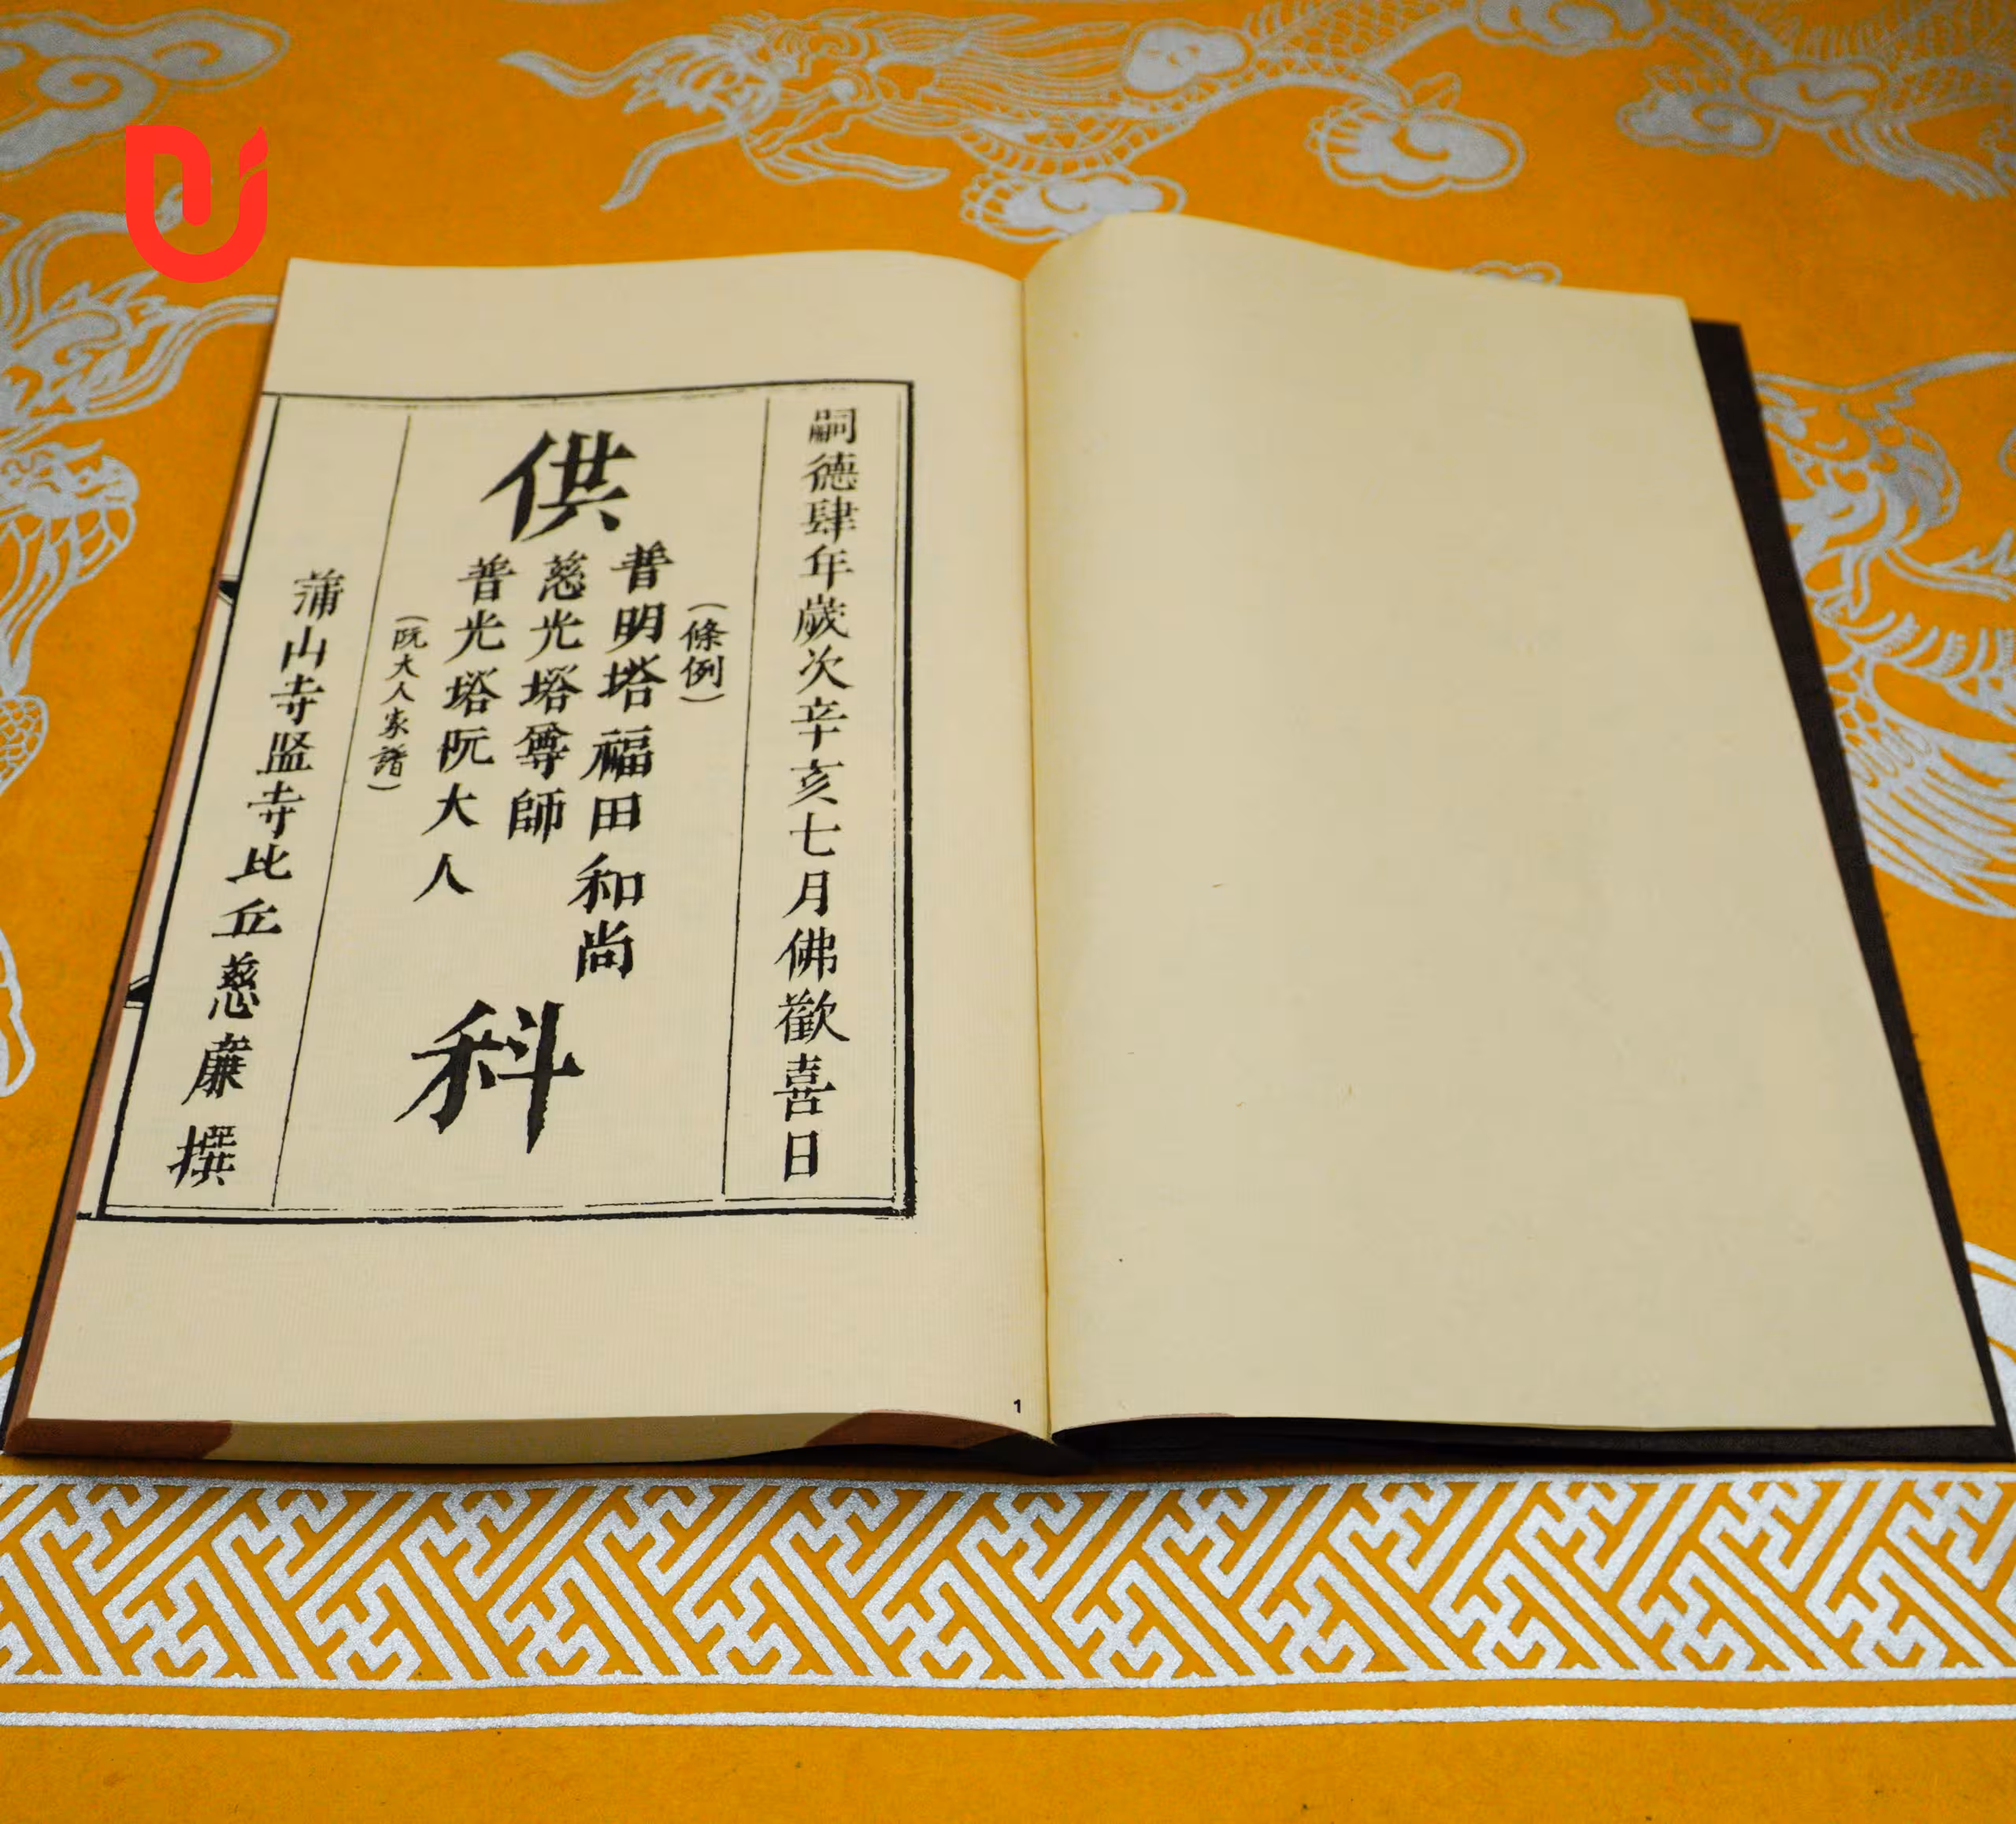 嗣德肆年歲次辛亥七月佛歡喜日
供
(條例)
普明塔福田和尚
慈光塔尊師
普光塔阮大人
(阮大人家譜)
科
蒲山寺監寺比丘慈廉撰
1